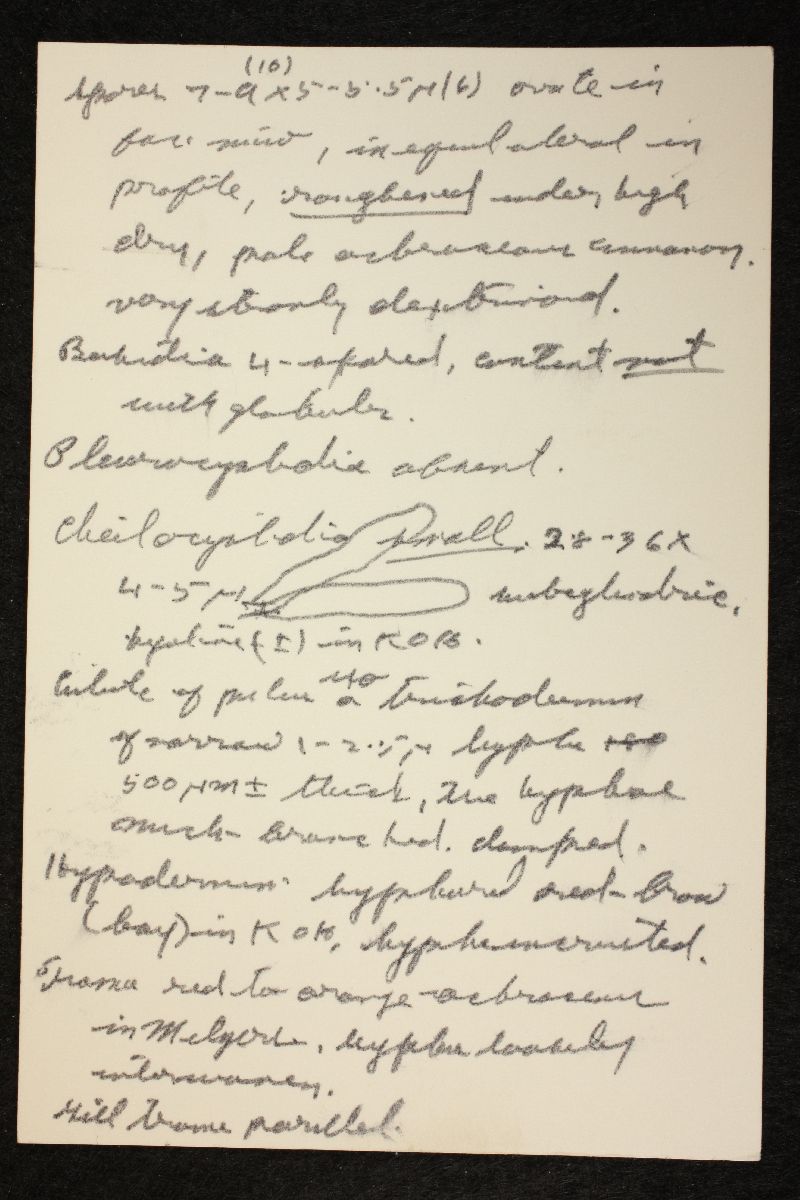 Spores 7-9(10) x 5-5.5µ(6) ovate in
face view, inequilateral in
profile, roughened under high
dry, pale ochraceous cinnamon.
very strongly dextrinoid.
Basidia 4-spored, content not
with globules.
Pleurocystidia absent.
Cheilocystidia small. 28-36 x
4-5µ subcylindric,
hyaline (±) in KOH.
Cuticle of pileus a trichodermium
of narrow 1-2.5µ hyphae
500 µm ± thick, the hyphae
much-branched. clamped.
Hypodermium hyphae red-brown
(bay) in KOH, hyphae incrusted.
Trama red to orange-ochraceous
in Melzer's, hyphae loosely
interwoven.
Gill trama parallel.